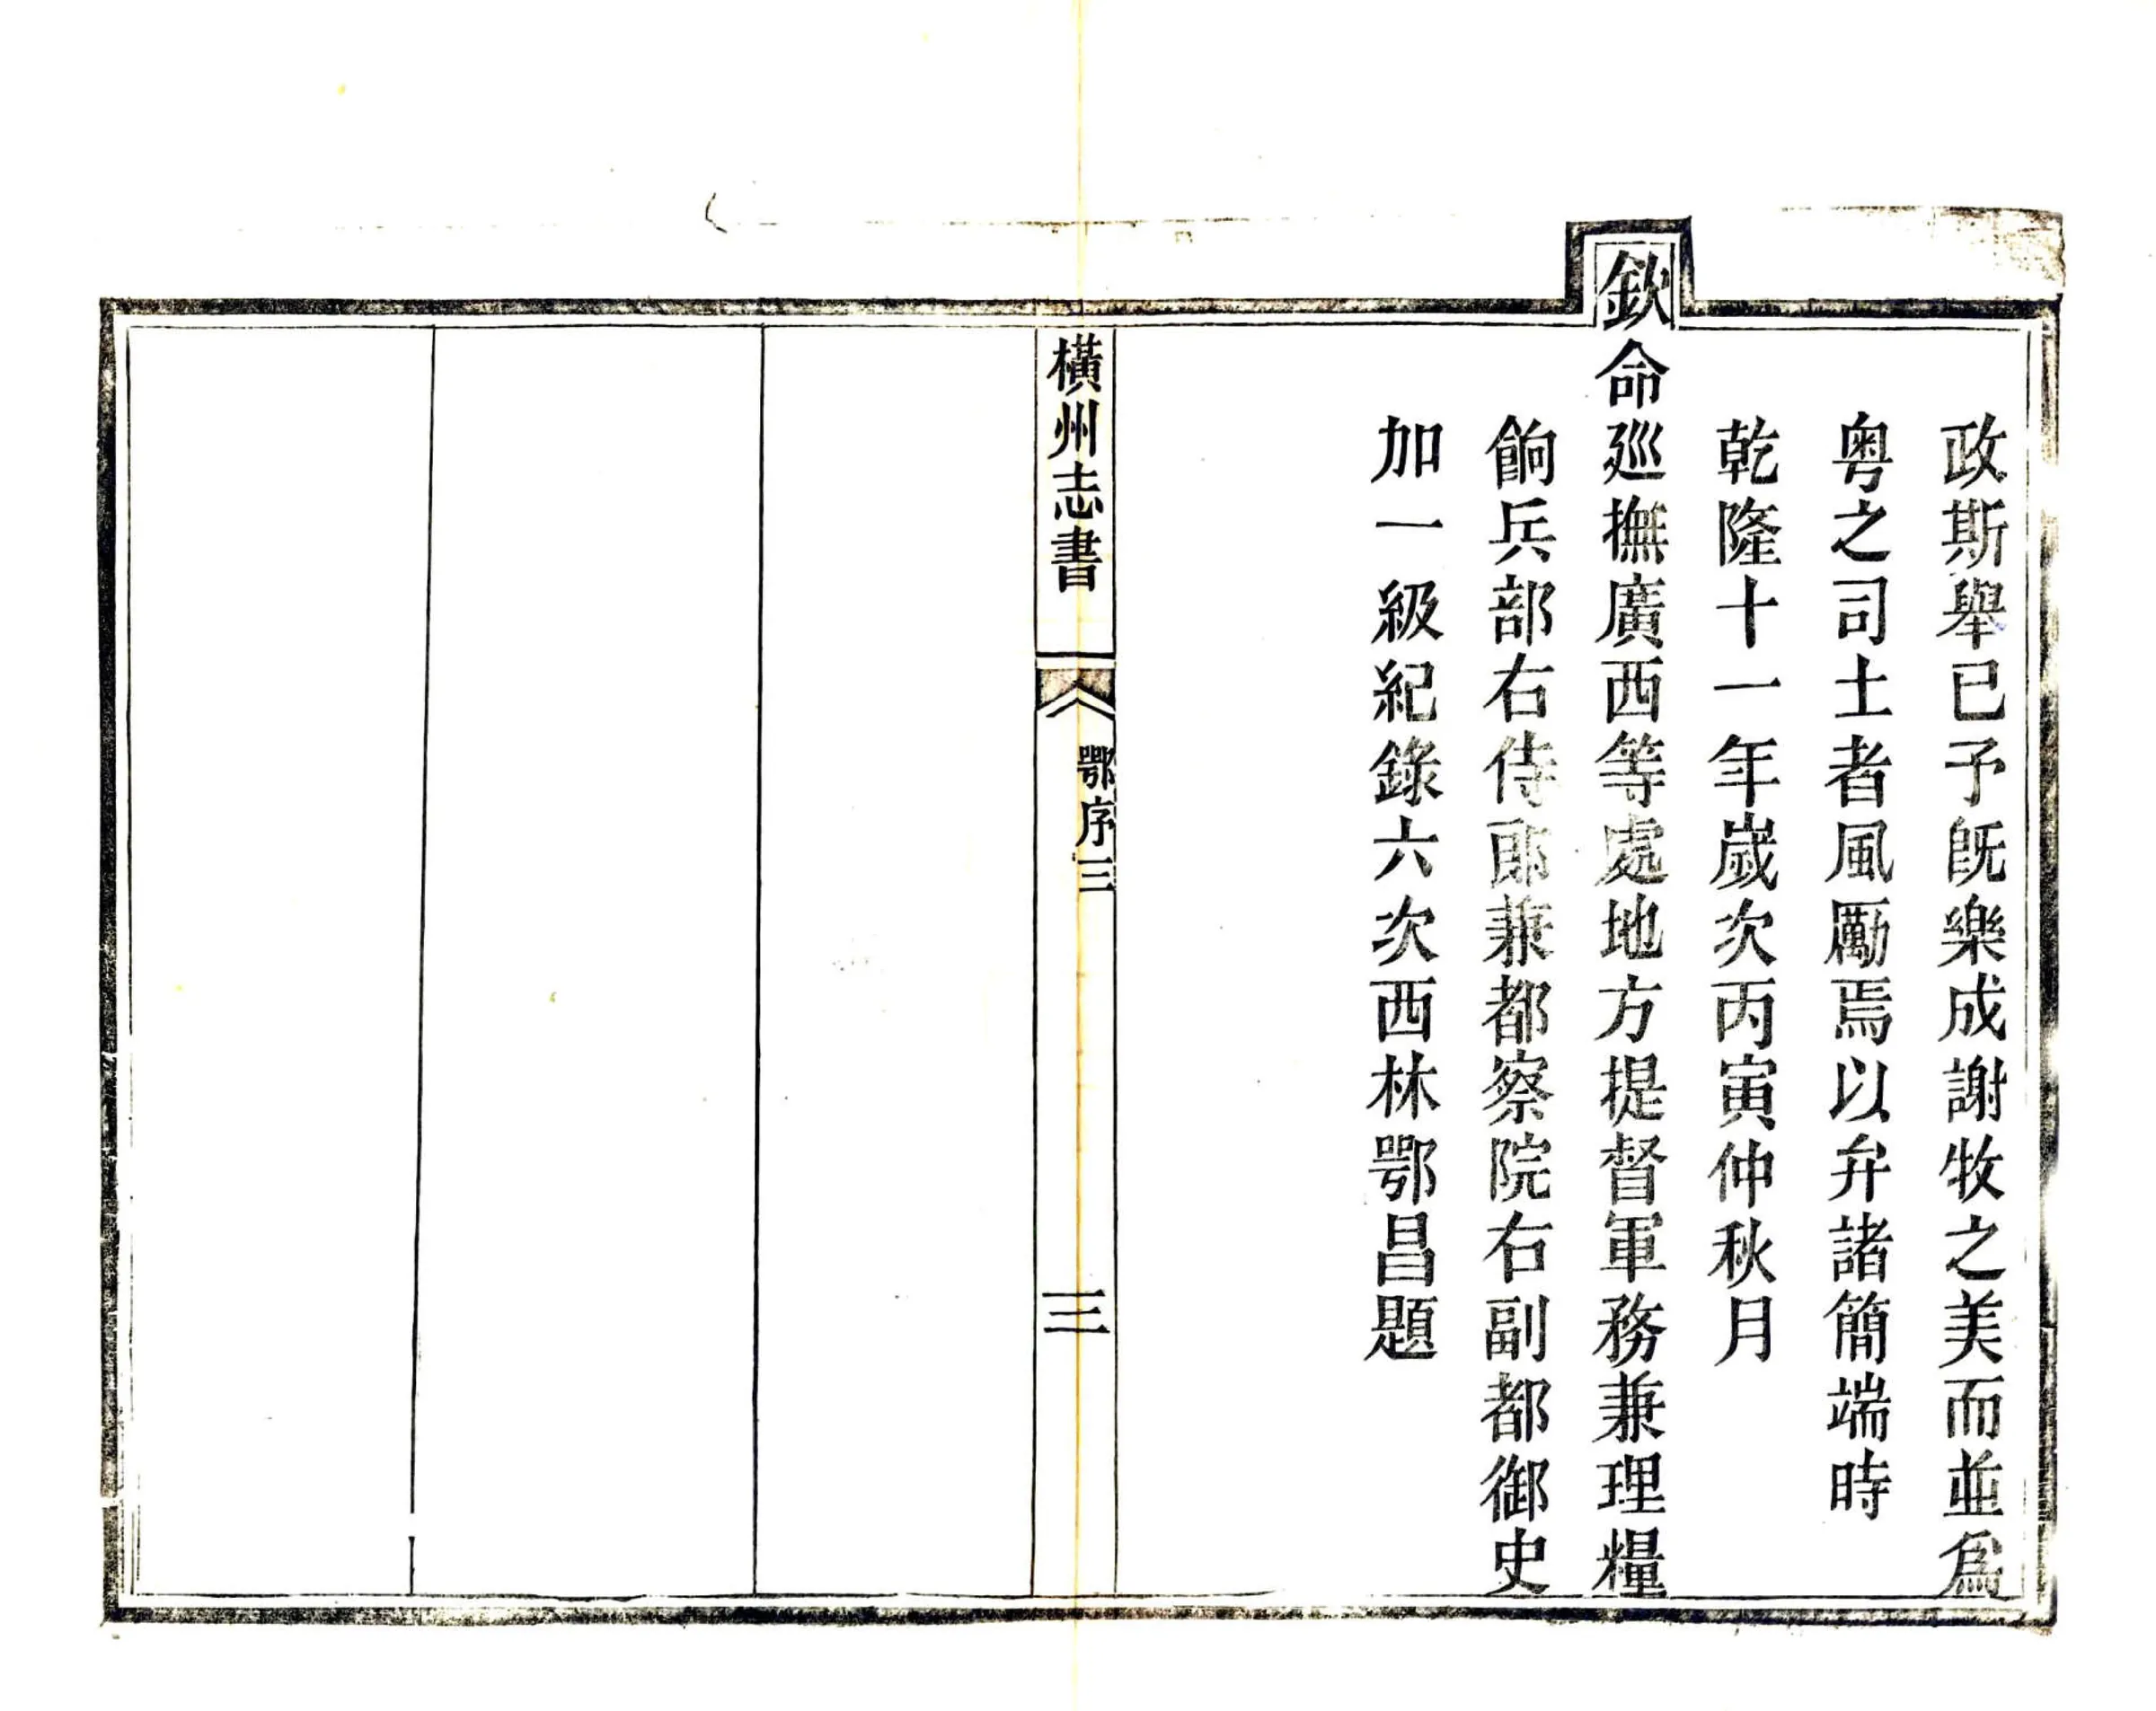 政斯舉已予旣樂成謝牧之美而並爲
粤之司土者風勵焉以弁諸簡端時
乾隆十一年歲次丙寅仲秋月
欽命廵撫廣西等處地方提督軍務兼理糧
餉兵部右侍郎兼都察院右副都御史
加一級紀錄六次西林鄂昌題
橫州志書
鄂序三
三